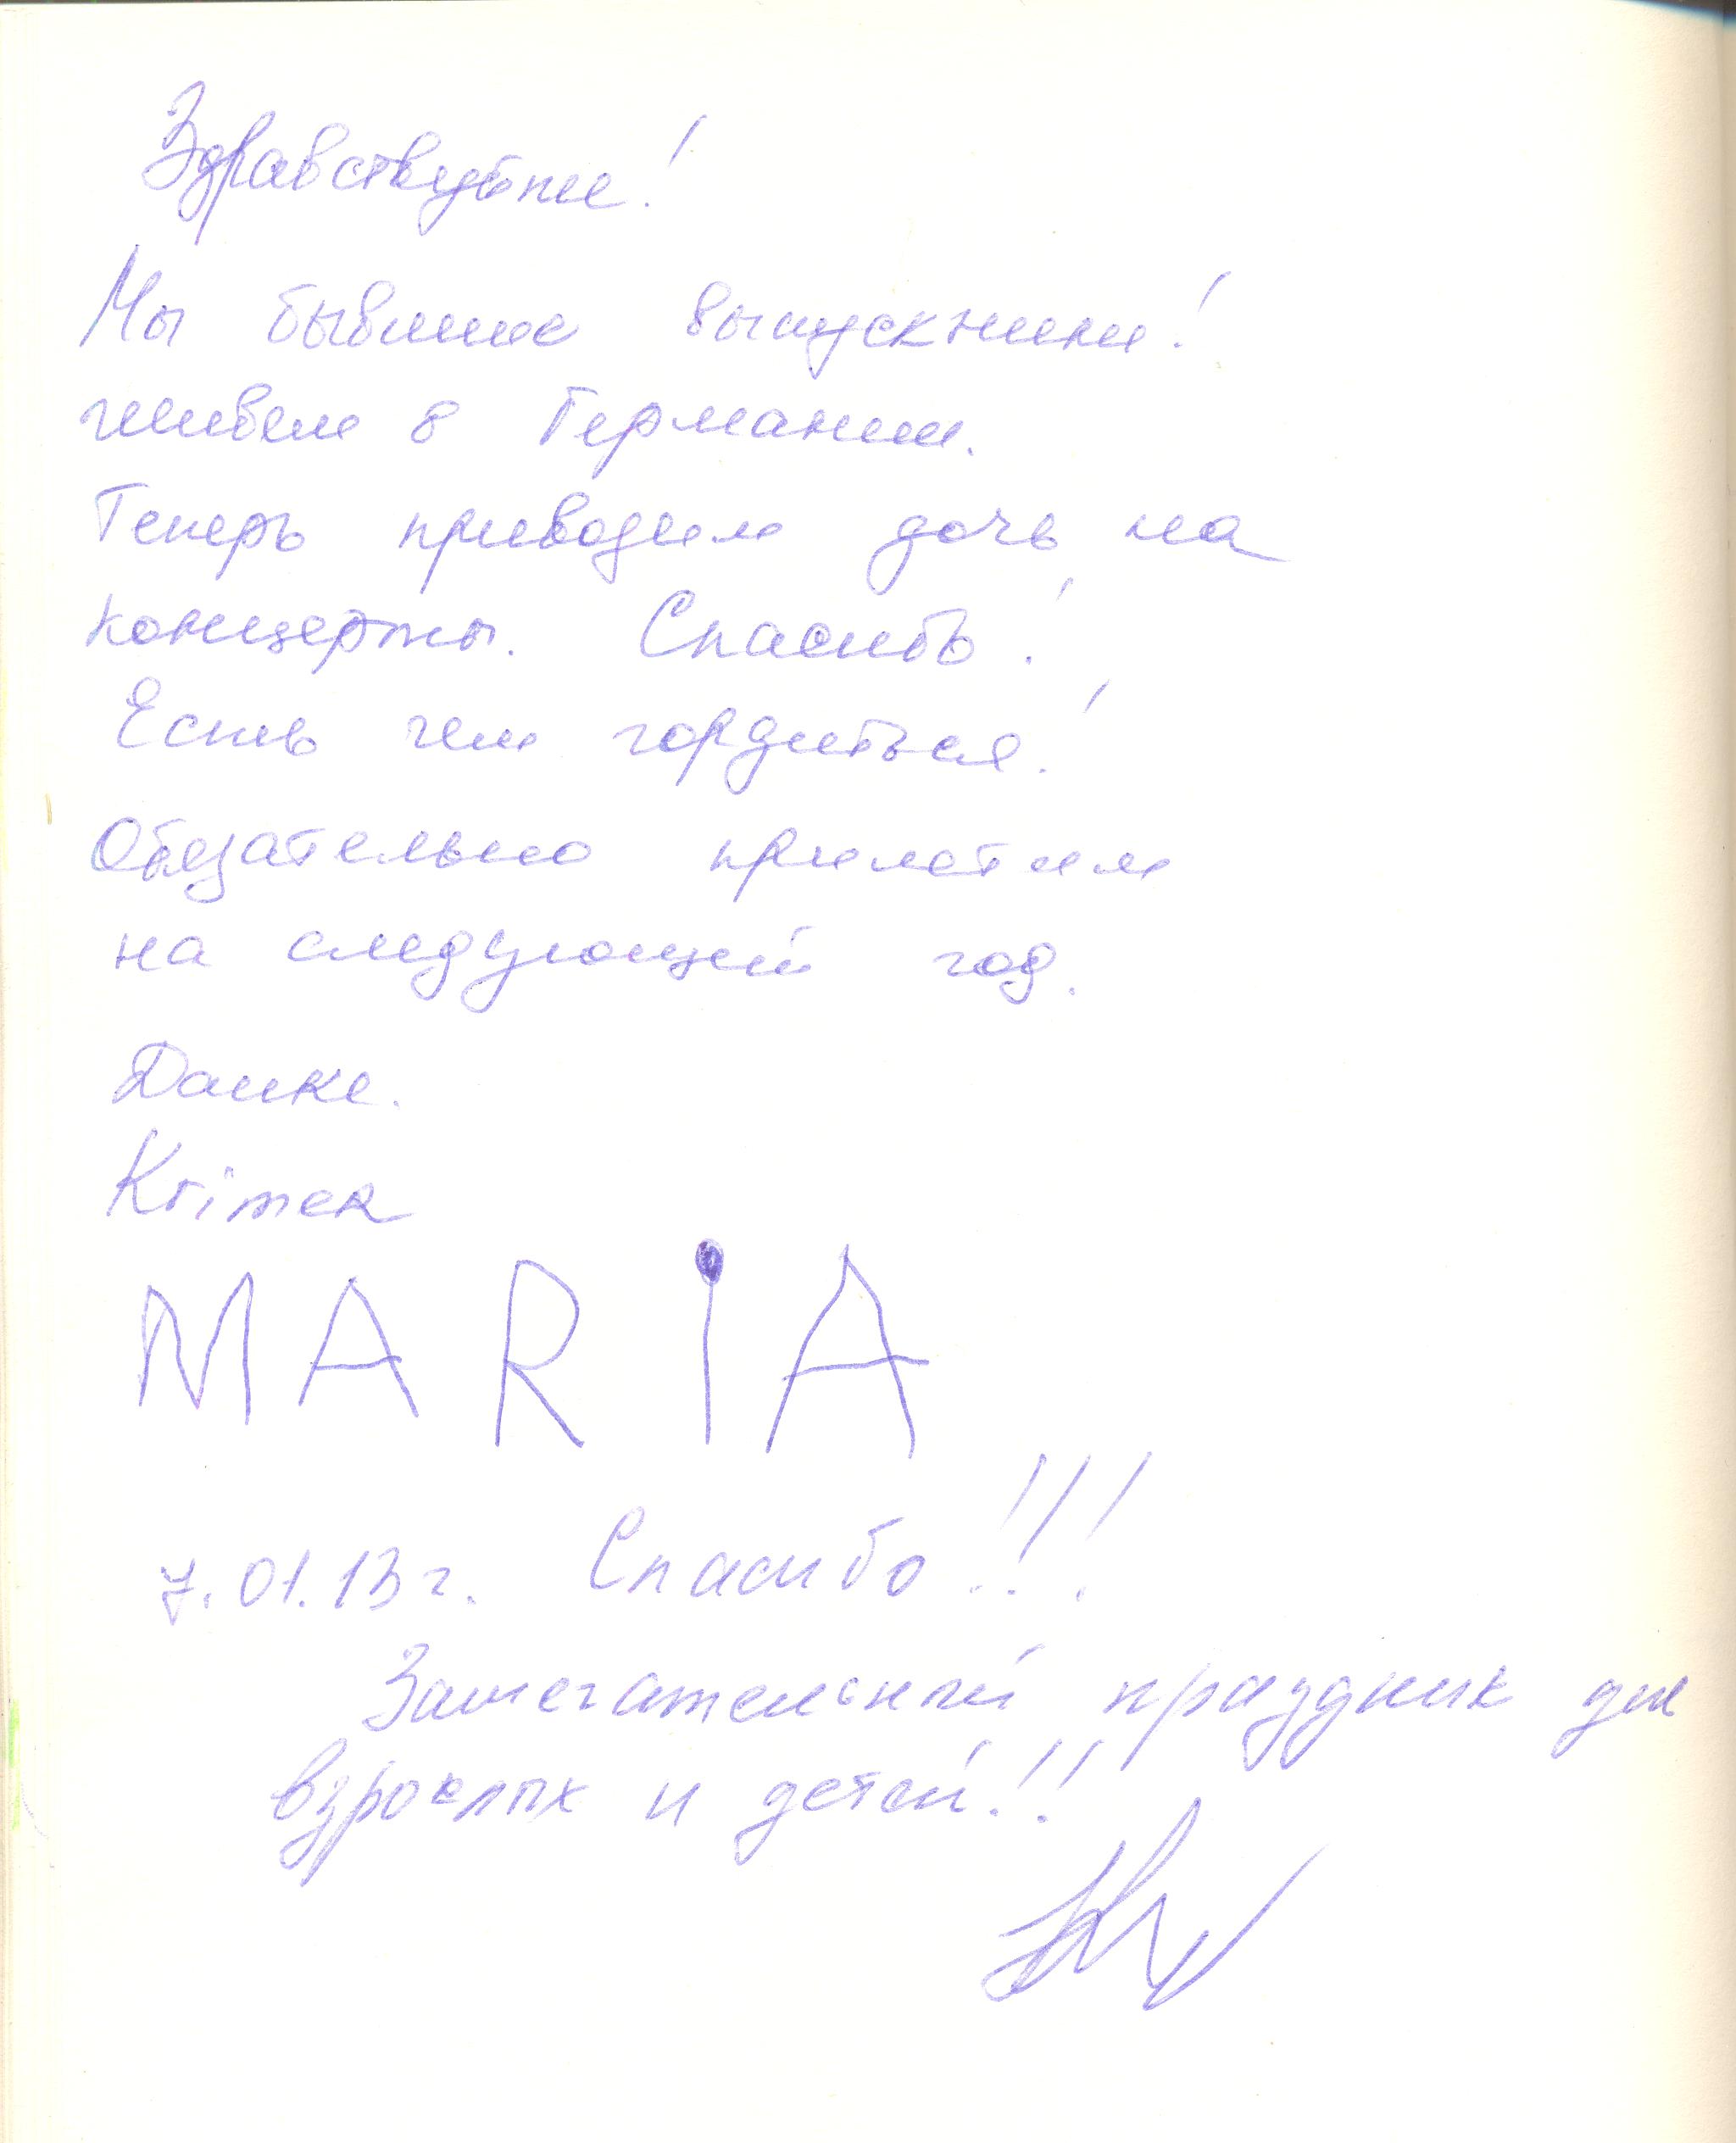 Здравствуйте!
Мы бывшие выпускники!
живем в Германии.
Теперь приводим дочь на
концерты. Спасибо!
Есть чем гордиться!
Обязательно прилетим
на следующий год.
Данке.
Krimer
MARiA
7.01.13г. Спасибо!!!
Замечательный праздник для
взрослых и детей!!